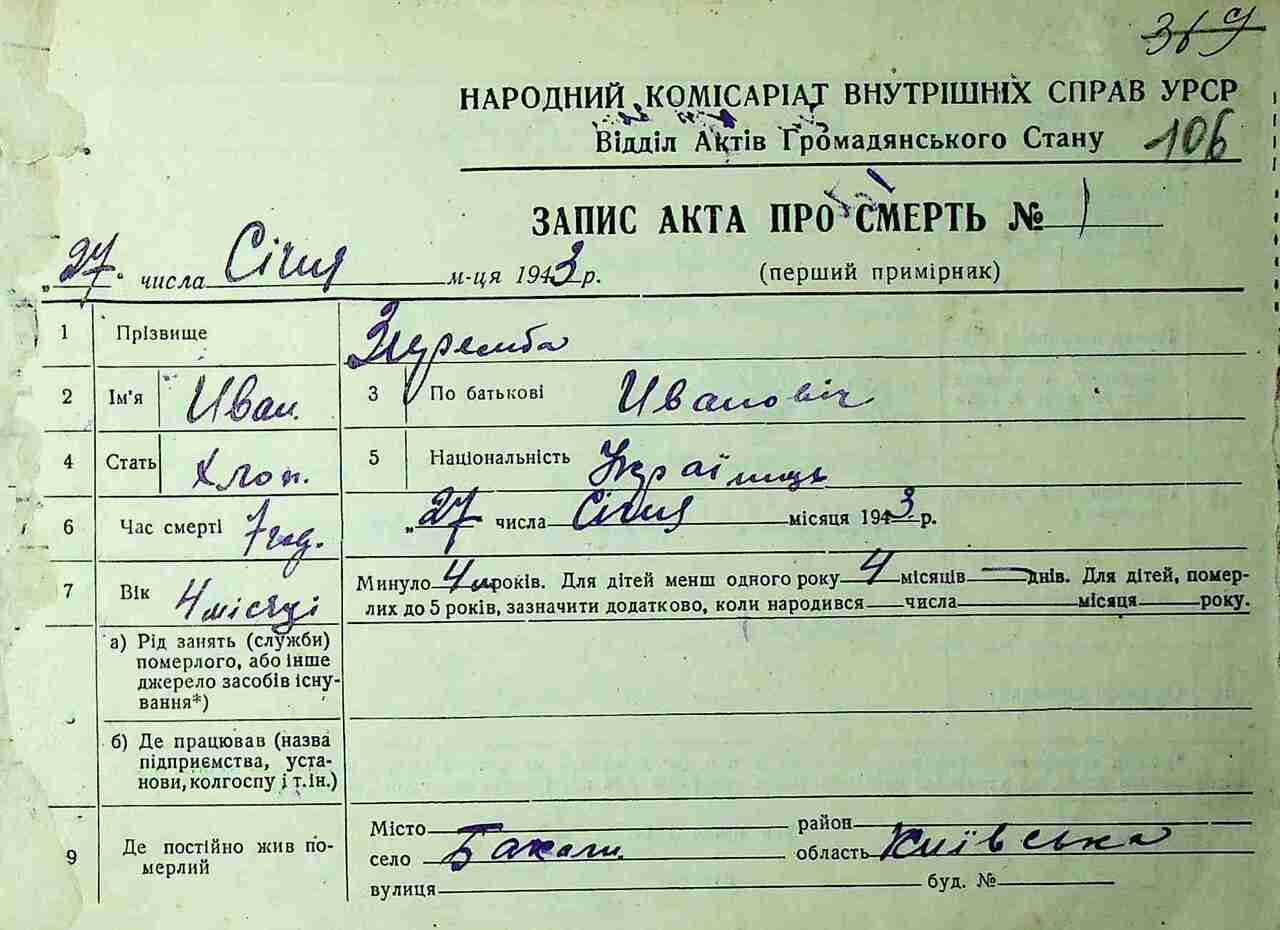 369
НАРОДНИЙ КОМІСАРІАТ ВНУТРІШНІХ СПРАВ УРСР
Відділ Актів Громадянського Стану 106
ЗАПИС АКТА ПРО СМЕРТЬ № 1
„27“ числа Січня м-ця 1943 р. (перший примірник)
1 Прізвище
2 Ім’я Иван 3 По батькові Ивановіч
4 Стать Хлоп. 5 Національність Українець
6 Час смерті 7 год. „27 числа Січня місяця 1943 р.
7 Вік 4 місяці Минуло 4 м років. Для дітей менш одного року 4 місяців — днів. Для дітей, помер-
лих до 5 років, зазначити додатково, коли народився числа місяця року.
а) Рід занять (служби)
померлого, або інше
джерело засобів існу-
вання*)
б) Де працював (назва
підприємства, уста-
нови, колгоспу і т.ін.)
9 Де постійно жив по-
мерлий
Місто район
село область Київська
вулиця буд. №